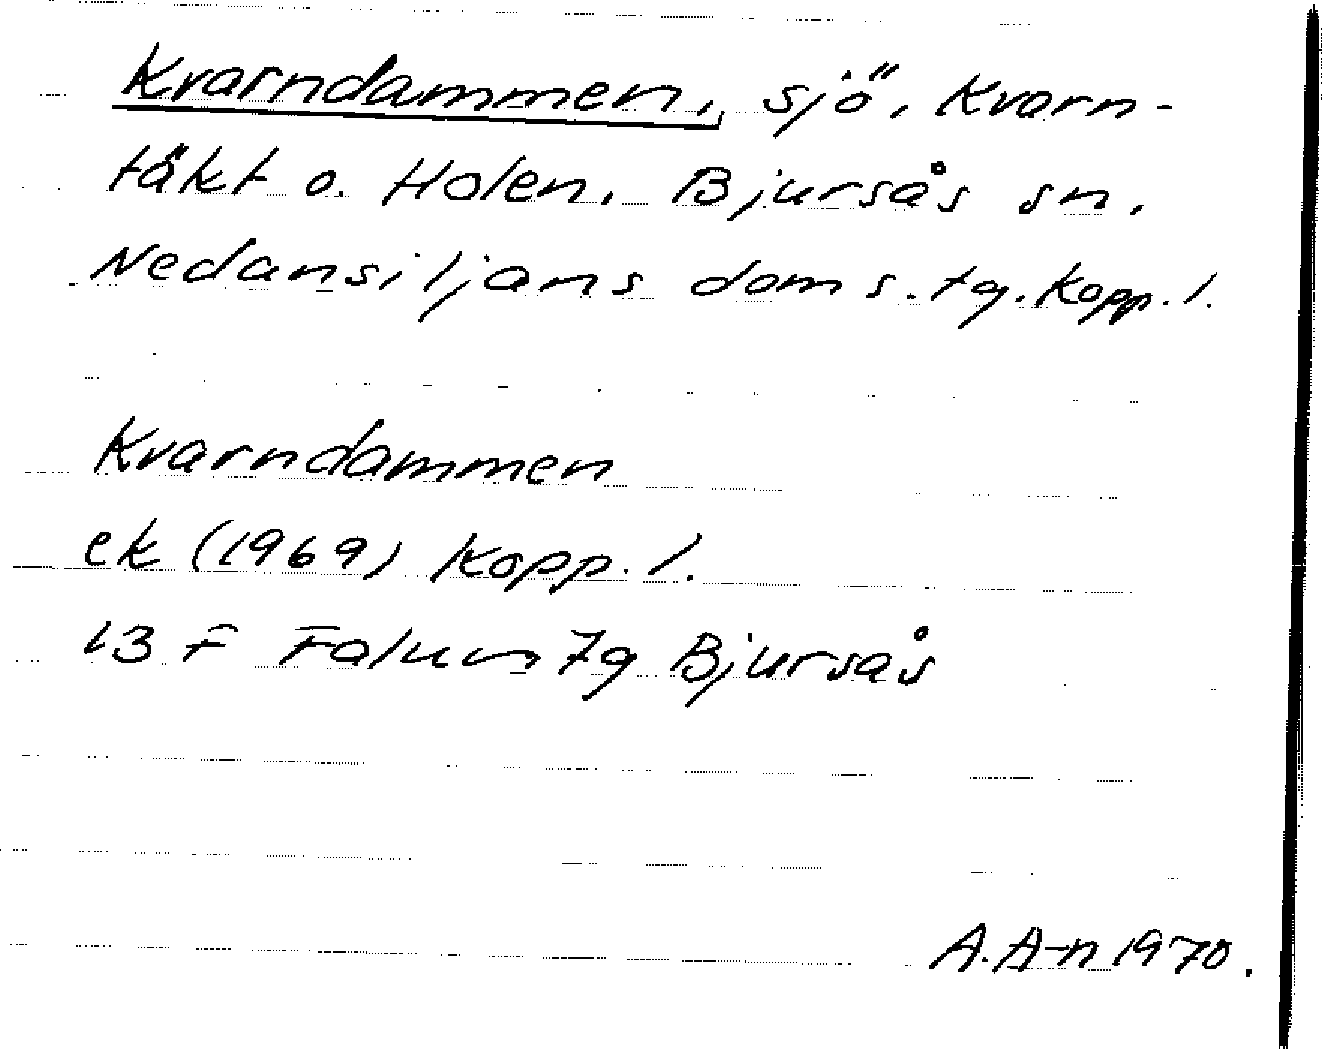 Kvarndammen, sjö, Kvarn-
täkt o. Holen, Bjursås sn,
Nedansiljans doms.tg. Kopp. l.
Kvarndammen
ek (1969) Kopp. l.
13 F Falun 7g Bjursås
A.A-n 1970.